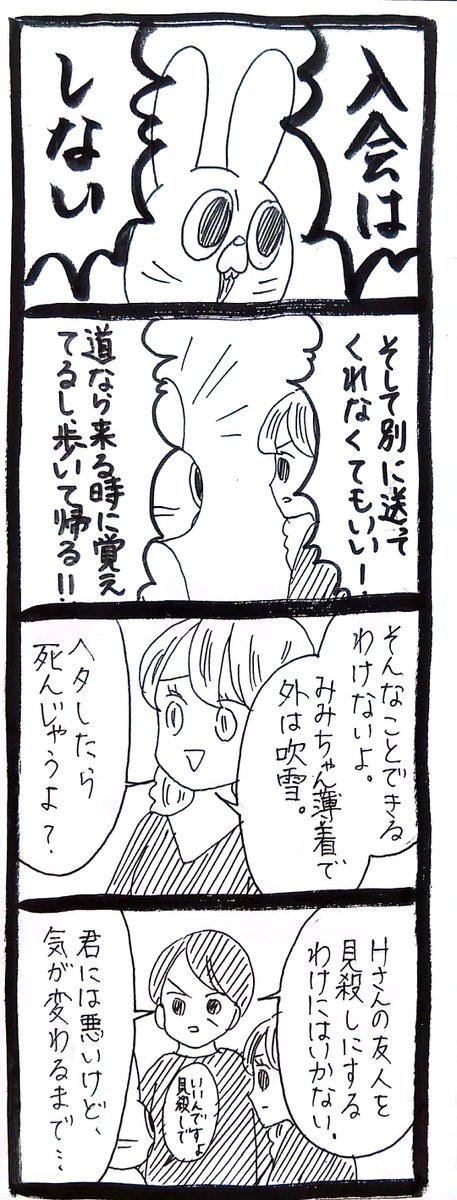 入会は
しない
そして別に送って
くれなくてもいいー！
道なら来る時に覚え
てるし、歩いて帰る!!
そんなことできる
わけないよ。
みみちゃん薄着で
外は吹雪。
ヘタしたら
死んじゃうよ？
Hさんの友人を
見殺しにする
わけにはいかない。
いいんですよ
見殺しで
君には悪いけど、
気が変わるまで…